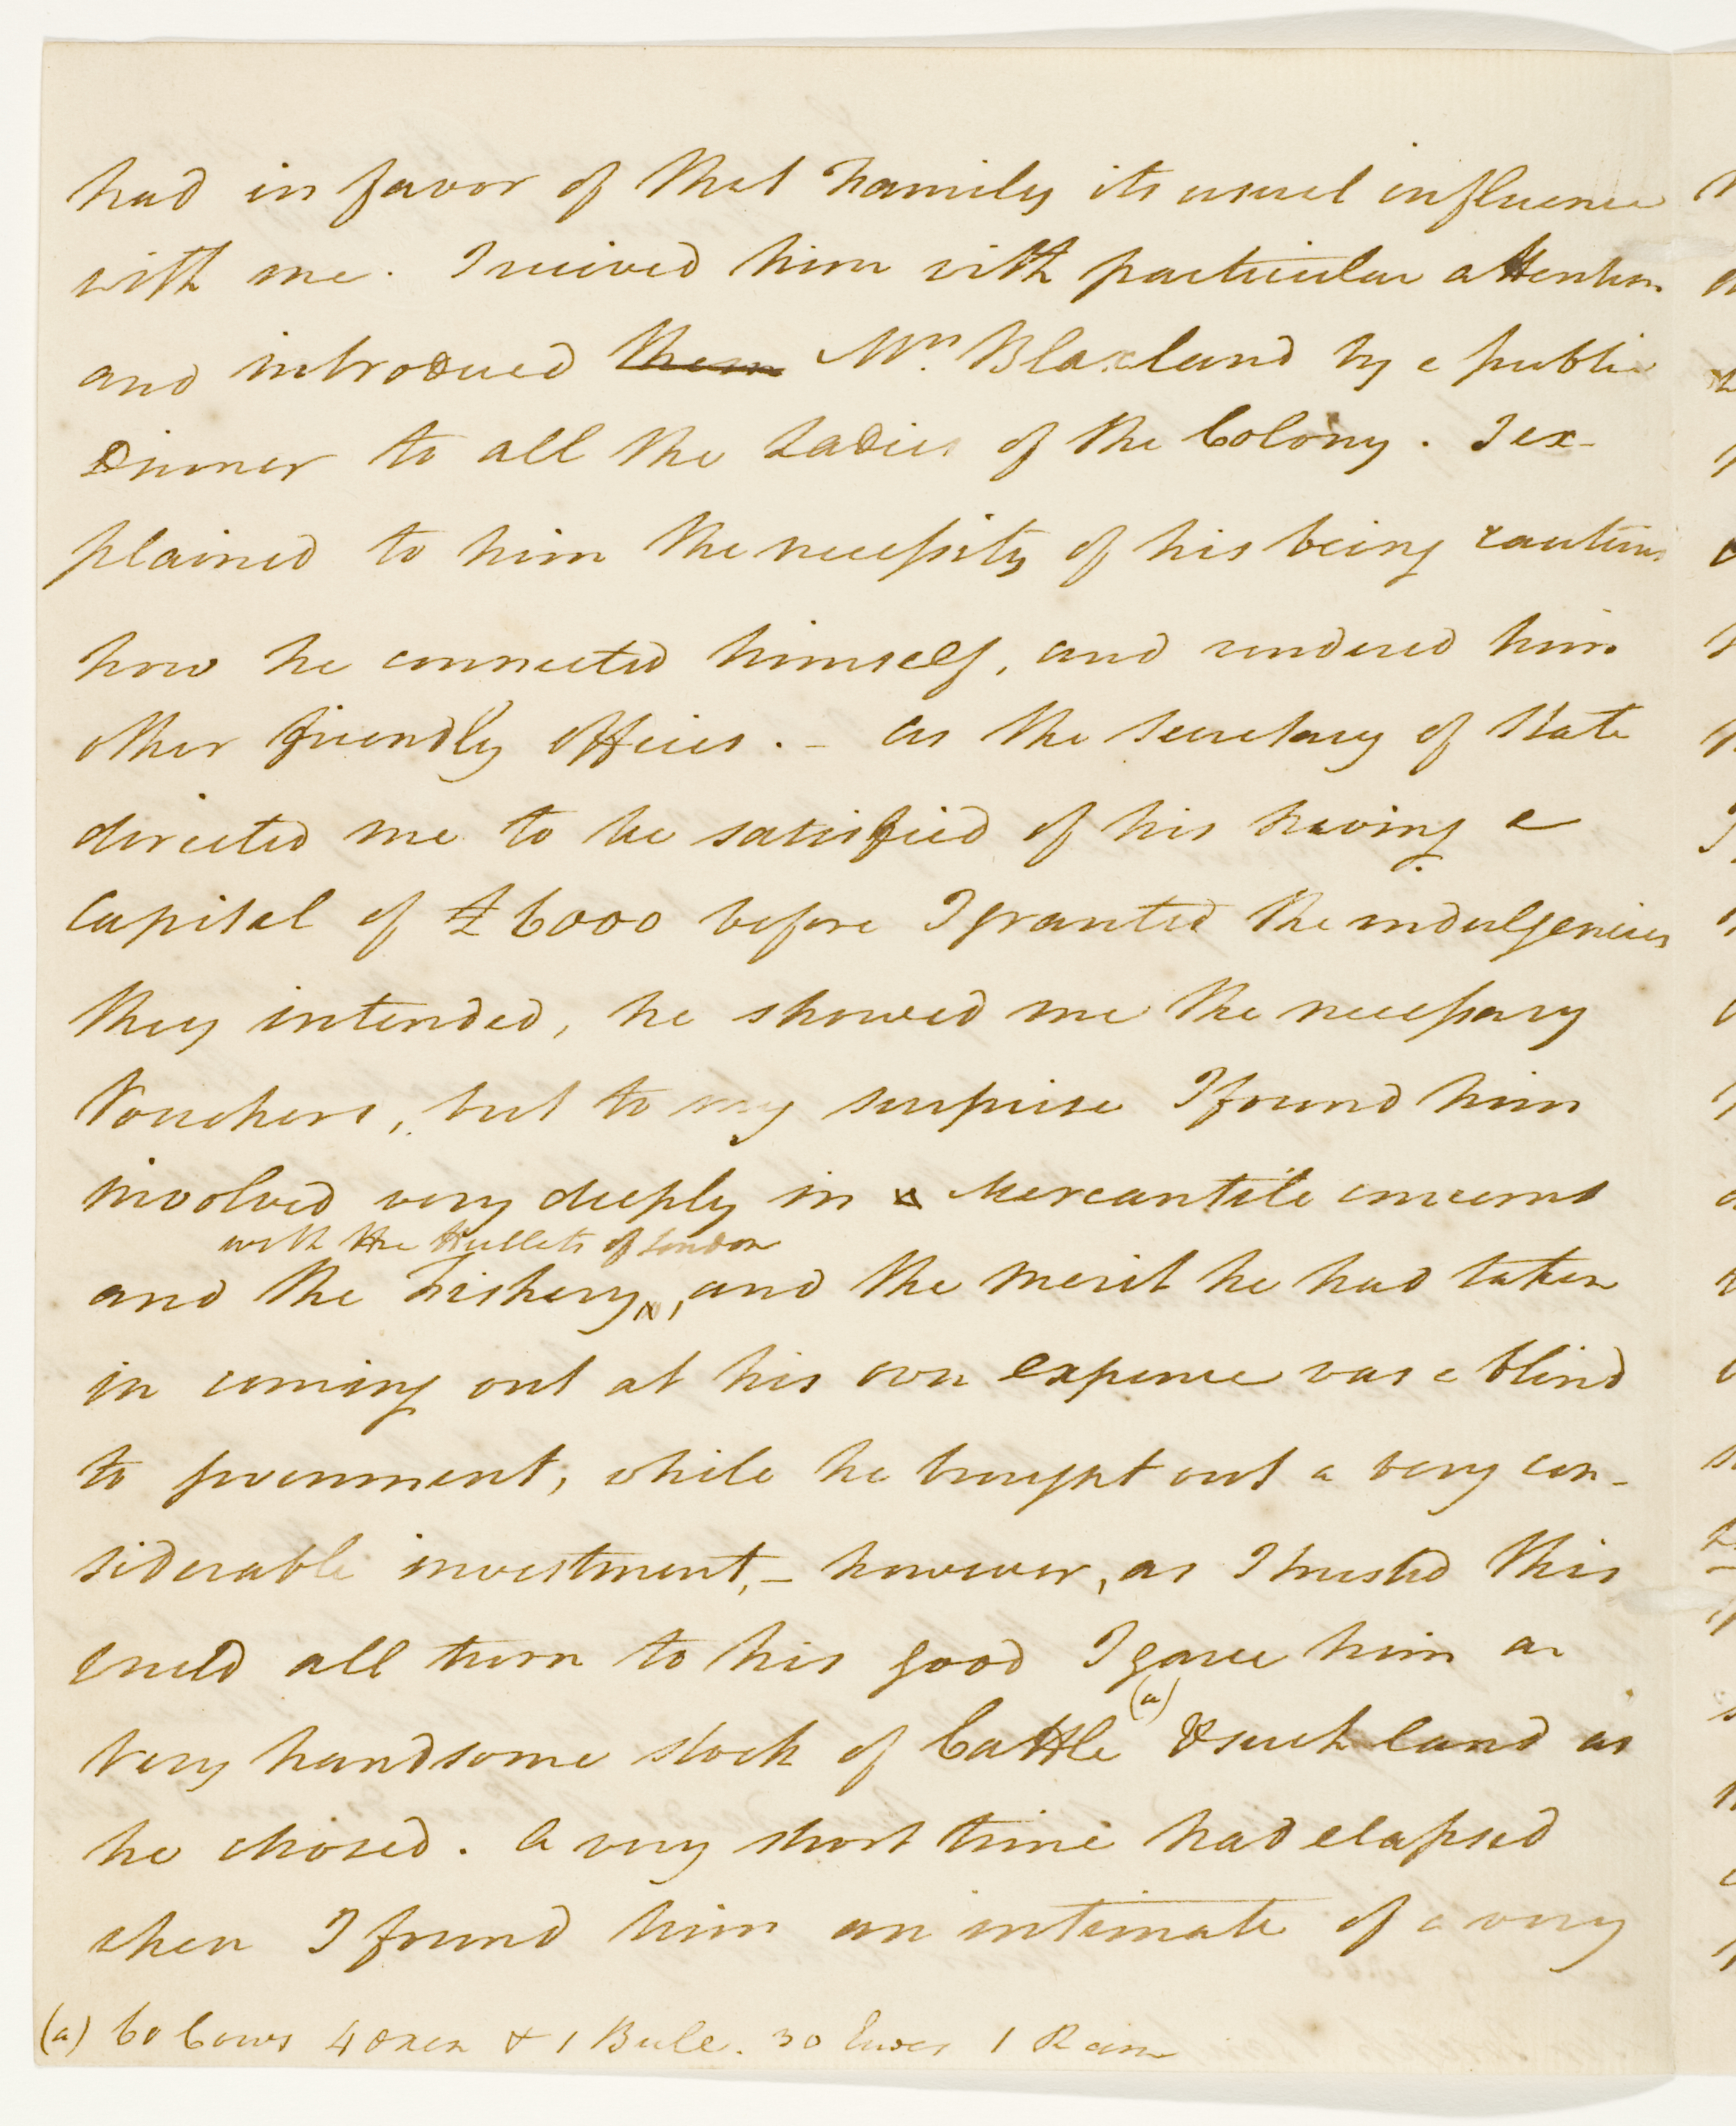 had in favor of that Family its usual influence
with me. I received him with particular attention
and introduced them Mrs. Blaxland by a public
Dinner to all the Ladies of the Colony. I ex-
plained to him the necessity of his being cautious
how he connected himself, and rendered him
other friendly offices. - As the Secretary of State
directed me to be satisfied of his having a
Capital of £6000 before I granted the indulgencies
they intended, he showed me the necessary
Vouchers, but to my surprise I found him
involved very deeply in a Mercantile concerns
with the Hulletts of London
and the Fishery ^, and the merit he had taken
in coming out at his own expence was a blind
to government, while he brought out a very con-
siderable investment, - however, as I trusted this
could all turn to his good I gave him a
(a)
very handsome stock of Cattle & such land as
he chosed. A very short time had elapsed
when I found him an intimate of a very
(a) 60 Cows 4 Oxen & 1 Bull. 30 Ewes 1 Ram